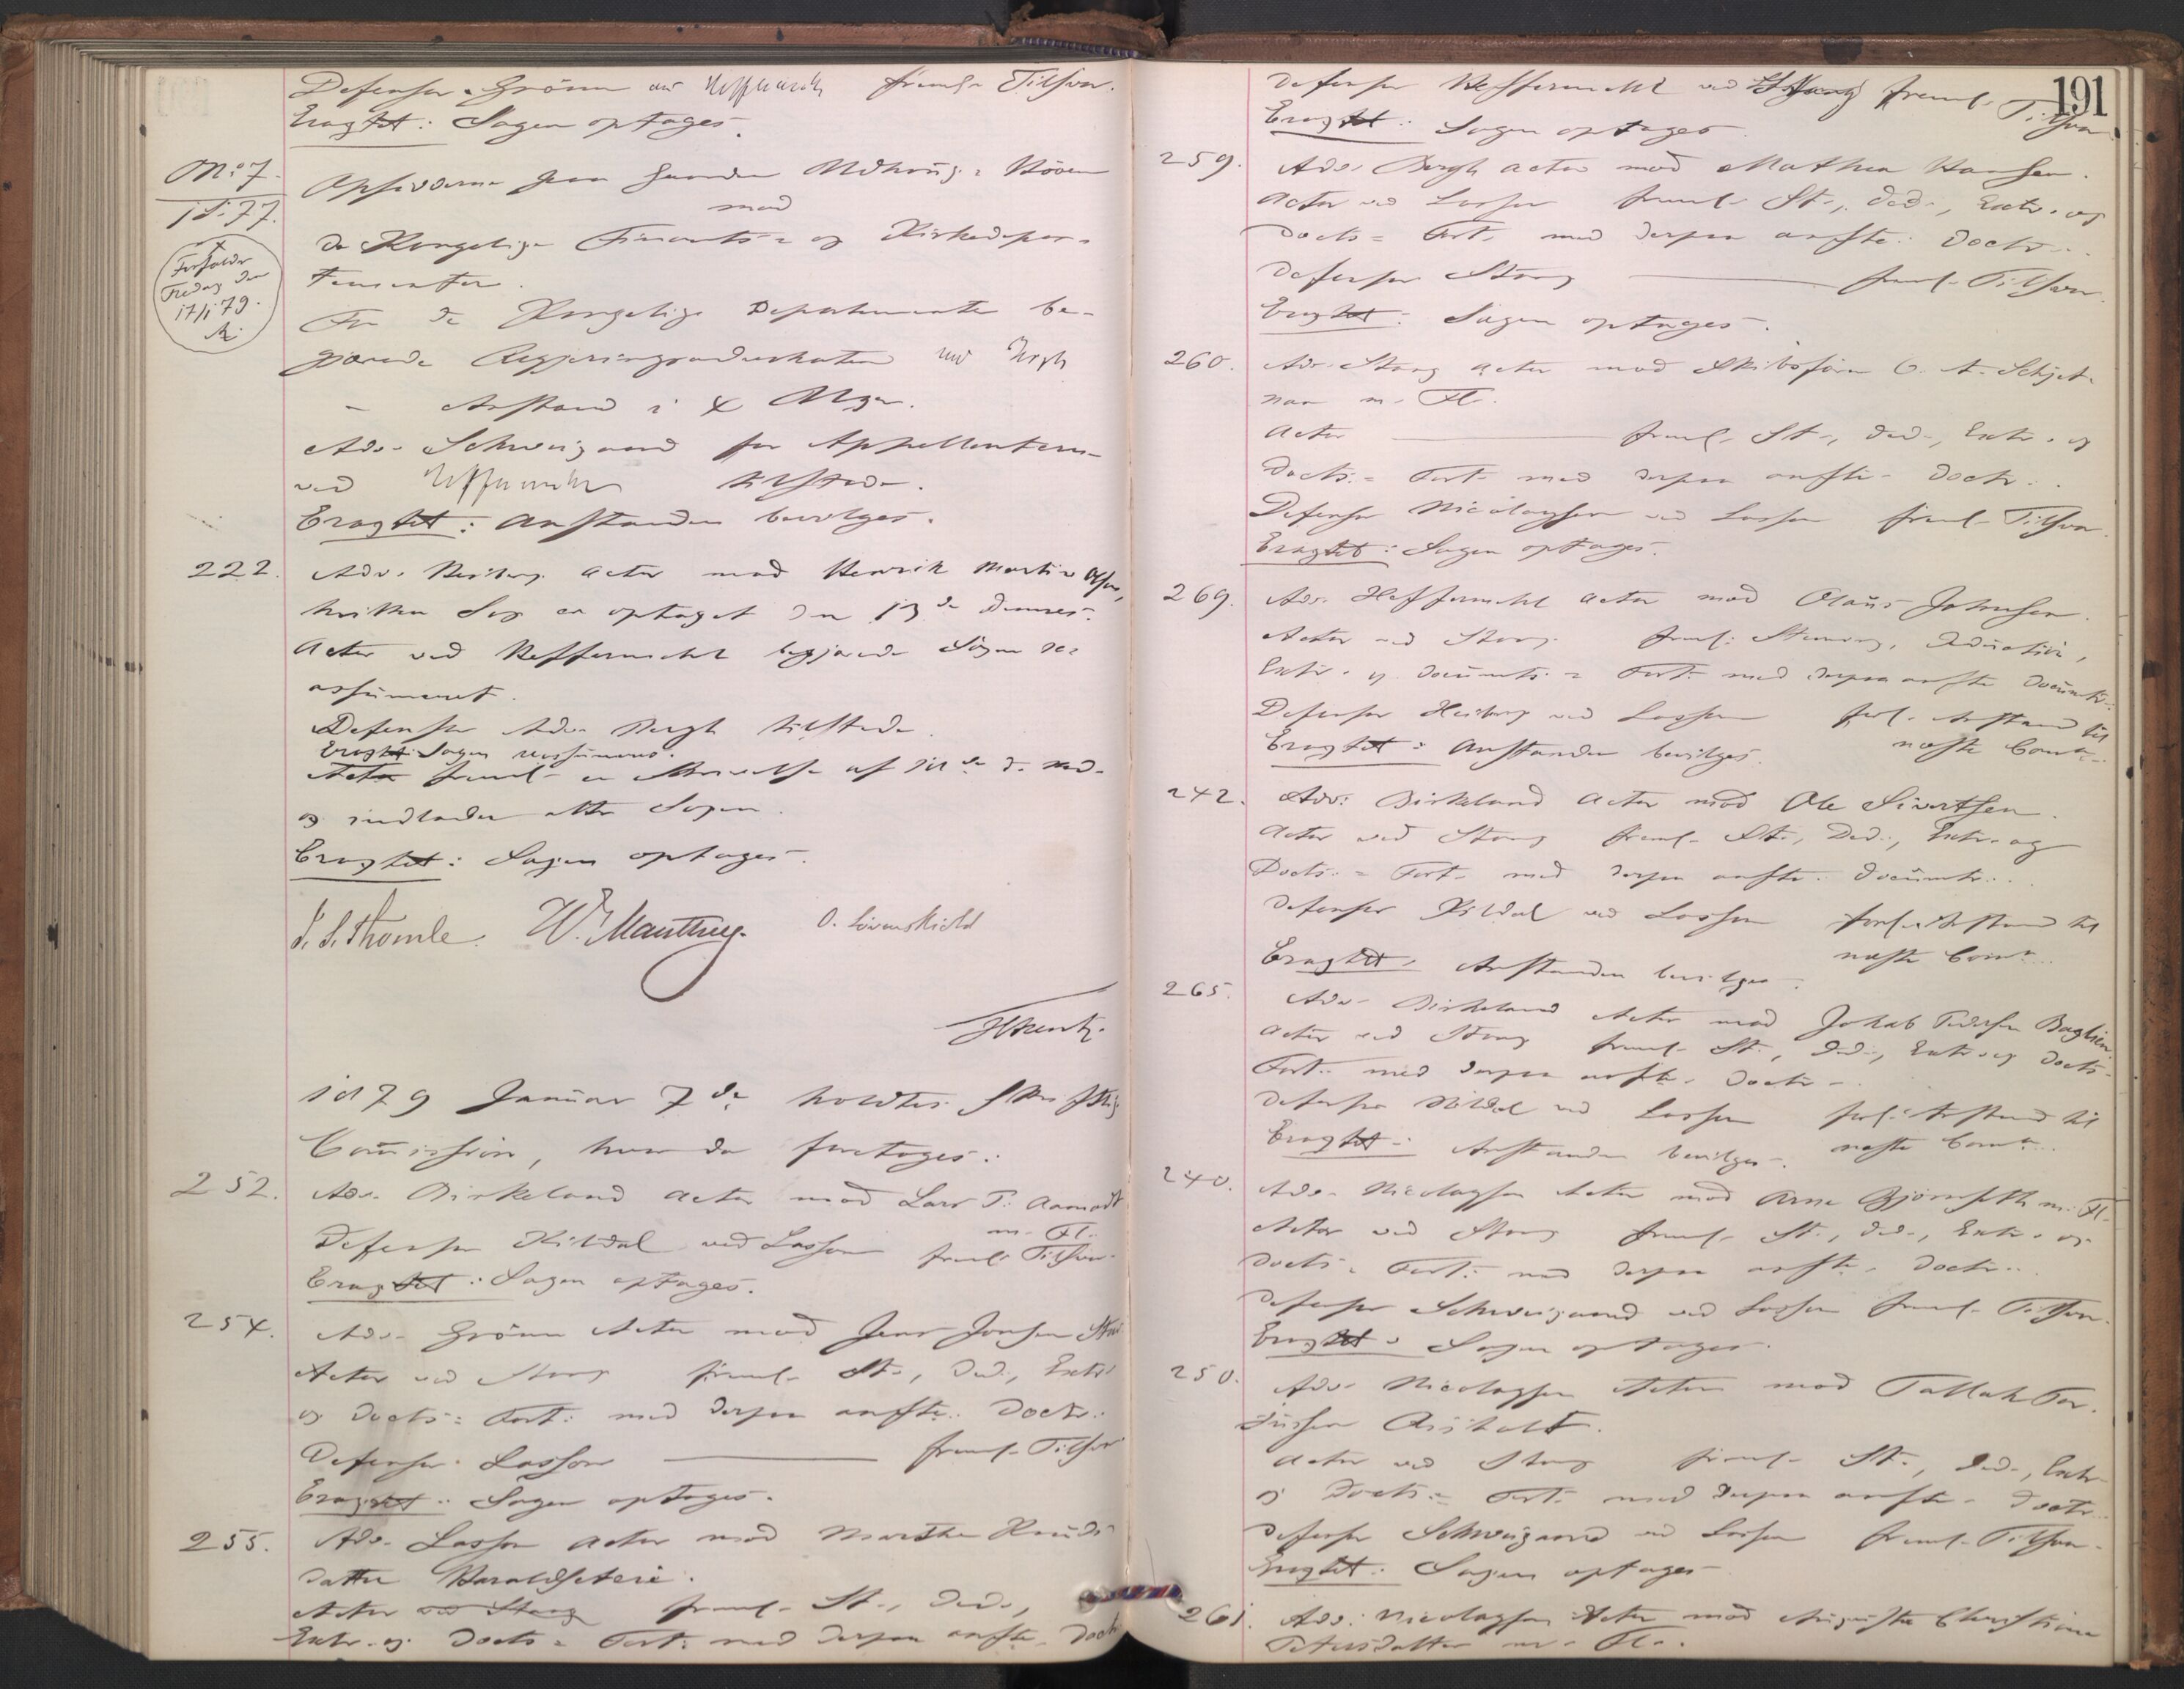 Defensor Grönn ved Hefferm. freml. Tilsvar.
Eragtet: Sagen optages.
No 7. Opsidderne paa
1877. mod
Forfalder
Fredag den
17/1 79.
de Kongelige Finants- og Kirkedepar-
tementer.
For de Kongelige Departementer be-
gjærede Regjeringsadvokaten ved
Anstand i 4 Uger.
Adv. Schweigaard for Appellanterne
ved Heffermehl tilstede.
Eragtet: Anstanden bevilges.
222. Adv. Heiberg Actor mod Henrik Martin Olsen,
hvilken Sag er optaget den 13de
Actor ved Heffermehl begjærede Sagen re-
assumeret.
Defensor Adv. Bergh tilstede.
Eragtet: Sagen reassumeres.
Actor freml. en Skrivelse af 18de d. Md.
og indlader atter Sagen.
Eragtet: Sagen optages.
I. S. Thomle. W. Manthey. O. Lövenskiold
1879 Januar 7de holdtes Skriftlig
Commission, hvor da foretoges:
252. Adv. Birkeland Actor mod Lars P. Aamodt
m. Fl.
Defensor Kildal ved Lasson freml. Tilsvar.
Eragtet: Sagen optages.
254. Adv. Grönn Actor mod Jens Jensen
Actor ved Stang freml. St., Ded., Extr.
og Docts.- Fort. med derpaa anfte. Doctr.
Defensor Lasson freml. Tilsvar
Eragtet: Sagen optages.
255. Adv. Lasson Actor mod Marthe Knuds-
datter Haraldseteie.
Actor ved Stang freml. St., Ded.,
Extr. og Docts.- Fort. med derpaa anfte. Doctr.
191
Defensor Heffermehl ved Stang freml. Tilsvar.
Eragtet: Sagen optages.
259. Adv. Bergh Actor mod Mathea Hansen.
Actor ved Lasson freml. St., Ded., Extr. og
Docts.- Fort. med derpaa anfte. Doctr.
Defensor Stang freml. Tilsvar.
Eragtet: Sagen optages.
260. Adv. Stang Actor mod Skibsförer O. A. Schjet-
nan m. Fl.
Actor freml. St., Ded., Extr. og
Docts.- Fort. med derpaa anfte. Doctr.
Defensor Nicolaysen ved Lasson freml. Tilsvar.
Eragtet: Sagen optages.
269. Adv. Heffermehl Actor mod Olaus Johnsen.
Actor ved Stang freml. Stevning, Deduction,
Extr. og Documts.- Fort. med derpaa anfte Documtr.
Defensor Heiberg ved Lasson forl. Anstand til
næste Comn.
Eragtet: Anstanden bevilges.
242. Adv. Birkeland Actor mod Ole Sivertsen.
Actor ved Stang freml. St., Ded., Extr. og
Docts.- Fort. med derpaa anfte. Documtr.
Defensor Kildal ved Lasson forl. Anstand til
næste Comn.
Eragtet: Anstanden bevilges.
265. Adv. Birkeland Actor mod Jakob Pedersen Baglien.
Actor ved Stang freml. St., Ded., Extr. og Docts.-
Fort. med derpaa anfte. Doctr.
Defensor Kildal ved Lasson forl. Anstand til
næste Comn.
Eragtet: Anstanden bevilges.
240. Adv. Nicolaysen Actor mod Arne Gjömseth m. Fl.
Actor ved Stang freml. St., Ded., Extr. og
Docts.- Fort. med derpaa anfte. Doctr.
Defensor Schweigaard ved Lasson freml. Tilsvar.
Eragtet: Sagen optages.
250. Adv. Nicolaysen Actor mod Tallak Ter-
jussen
Actor ved Stang freml. St., Ded., Extr.
og Docts.- Fort. med derpaa anfte. Doctr.
Defensor Schweigaard ved Lasson freml. Tilsvar.
Eragtet: Sagen optages.
261. Adv. Nicolaysen Actor mod Augusta Christine
Petersdatter m. Fl.